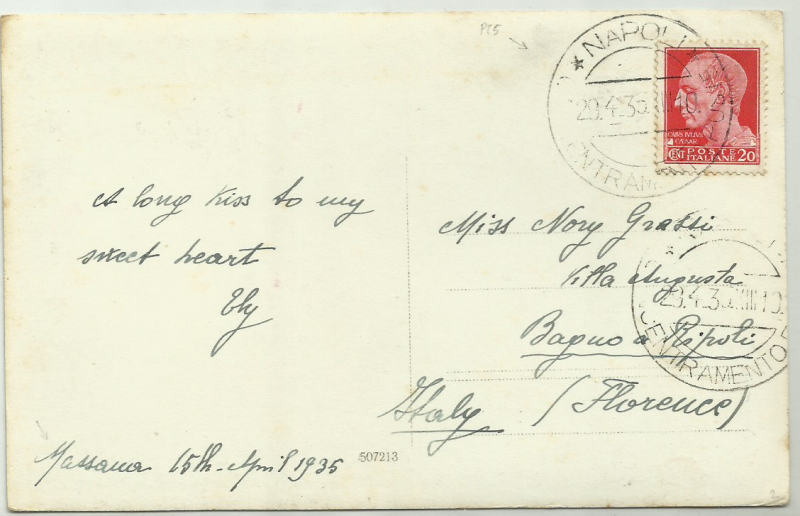 PC5
A long kiss to my
sweet heart
Ely
Massaua 15th April 1935
507213
* NAPOLI
29.4.35 XIII 10.
CENTRAMENTO
CAIVS IVLIVS
CAESAR
CENT POSTE ITALIANE 20
Miss Nory Grassi
Villa Augusta
Bagno a Ripoli
Italy (Florence)
29.4.35 XIII 10.
CENTRAMENTO